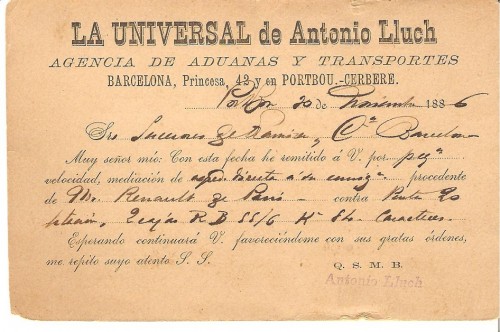 LA UNIVERSAL de Antonio Lluch
AGENCIA DE ADUANAS Y TRANSPORTES
BARCELONA, Princesa, 42 y en PORTBOU.-CERBERE.
PortBou 20 de Noviembre 1886
Srs Sucesores de Ramirez y Cª Barcelona
Muy señor mio: Con esta fecha he remitido á V. por peqª
velocidad, mediación de directa á su consigª procedente
de Mr. Renault de Paris contra
2 cajas R B 55/6 Kº Caracteres.
Esperando continuará V. favoreciéndome con sus gratas órdenes,
me repito suyo atento S. S.
Q. S. M. B.
Antonio Lluch